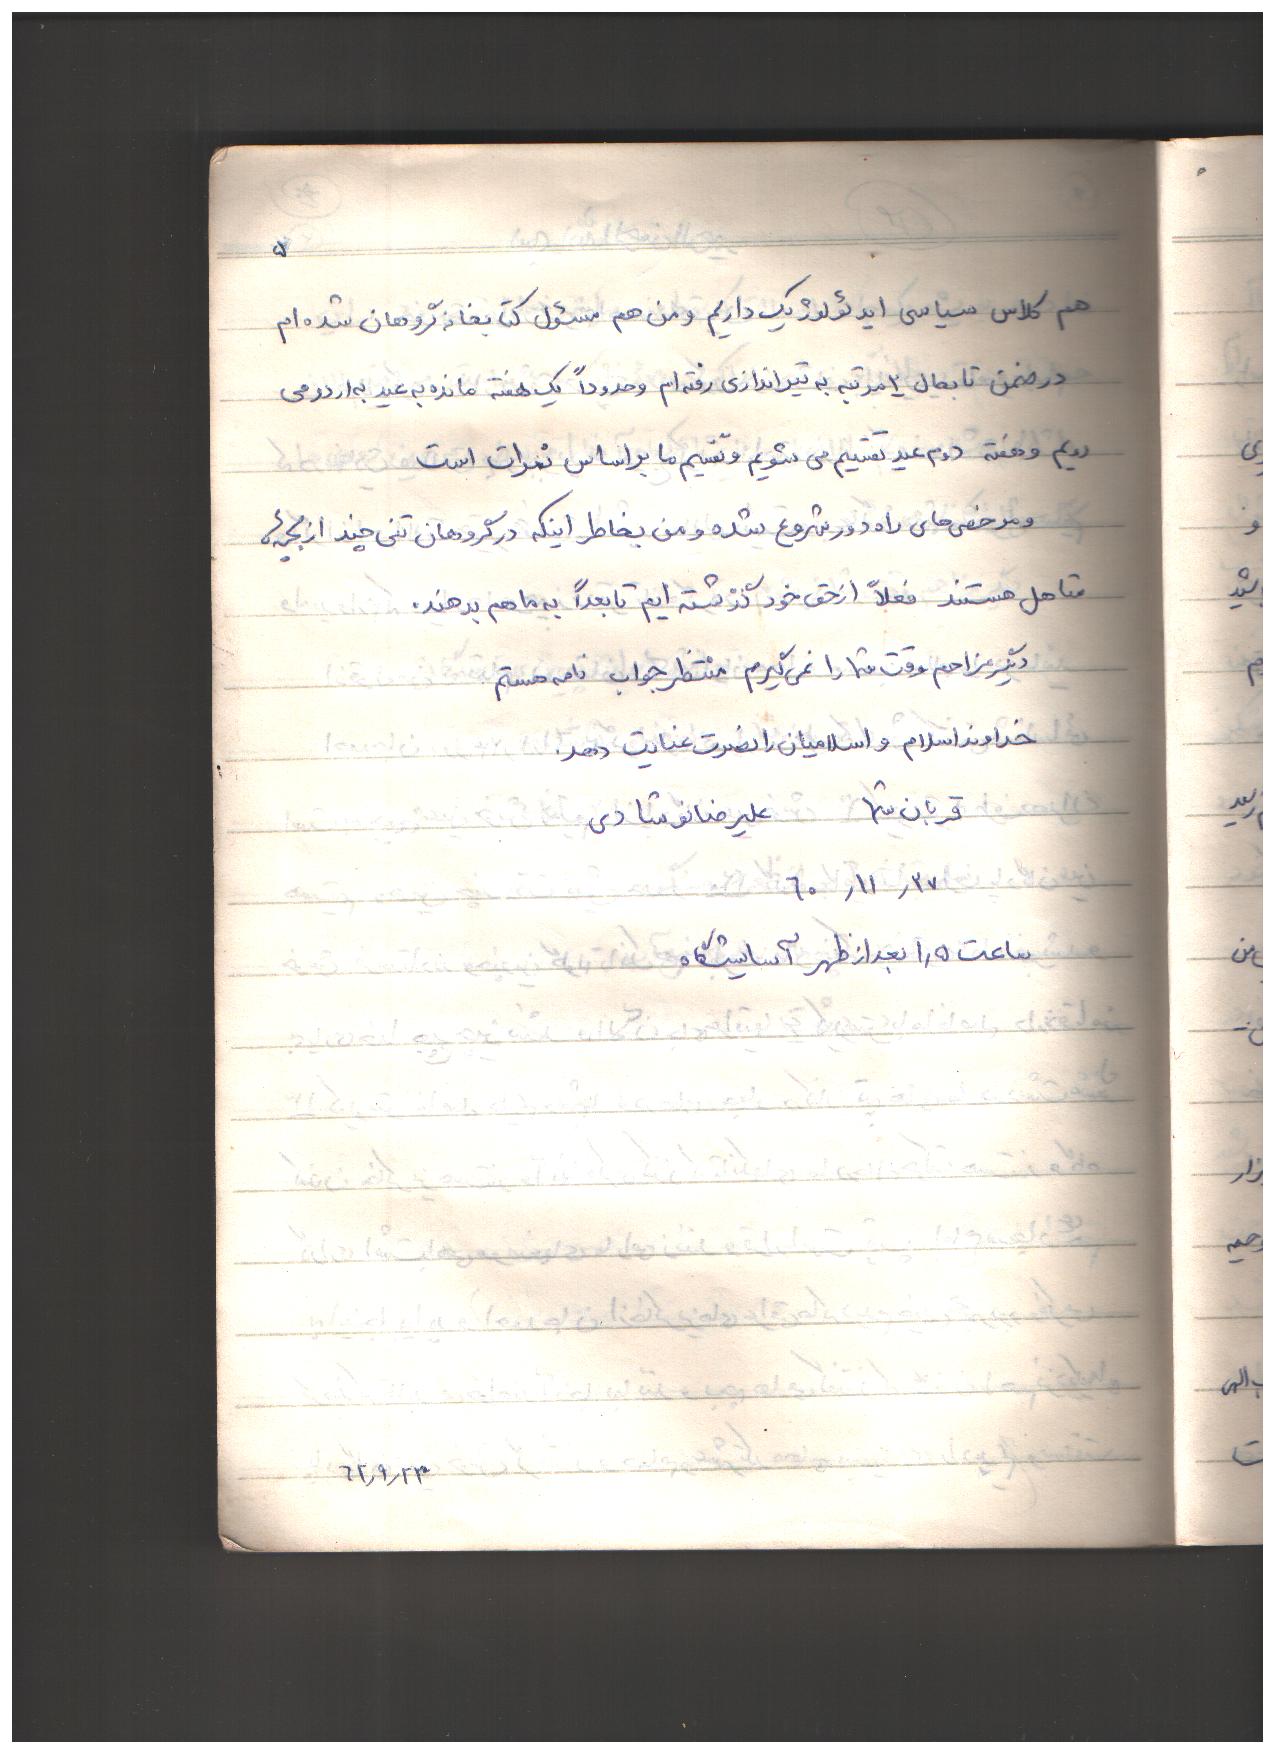 ۵
هم کلاس سیاسی ایدئولوژیک داریم و من هم مسئول کتابخانه گروهان شده ام
در ضمن تا بحال ۲ مرتبه به تیراندازی رفته ام وحدوداً یک هفته مانده به عید به اردو می
رویم و هفته دوم عید تقسیم می شویم و تقسیم ما بر اساس نمرات است
و مرخصی های راه دور شروع شده و من بخاطر اینکه در گروهان تنی چند از بچه ها
متاهل هستند فعلاً از حق خود گذشته ایم تا بعداً به ما هم بدهند.
دیگر مزاحم وقت شما را نمی گیرم منتظر جواب نامه هستم.
خداوند اسلام و اسلامیان را نصرت عنایت دهد.
قربان شما علیرضا نوشادی
۶۰/۱۱/۲۷
ساعت ۱/۵ بعد از ظهر آسایشگاه
۶۲/۹/۲۳